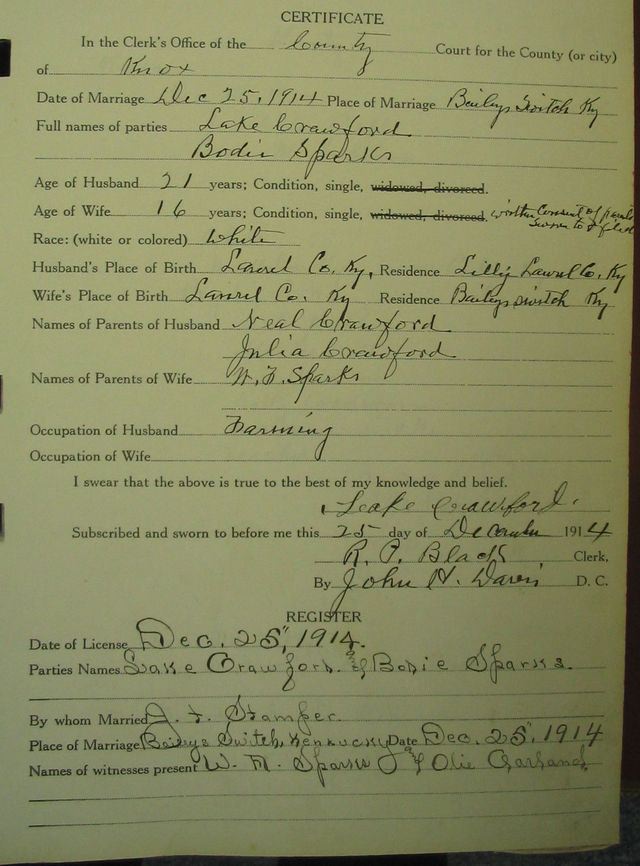 CERTIFICATE
In the Clerk's Office of the County Court for the County (or city)
of Knox
Date of Marriage Dec 25, 1914 Place of Marriage Baileys Switch Ky
Full names of parties Lake Crawford
Bodie Sparks
Age of Husband 21 years; Condition, single, widowed, divorced.
Age of Wife 16 years; Condition, single, widowed, divorced. consent of
sworn to & filed
Race: (white or colored) White
Husband's Place of Birth Laurel Co. Ky, Residence Lilly Laurel Co. Ky
Wife's Place of Birth Laurel Co. Ky Residence Baileys switch Ky
Names of Parents of Husband Neal Crawford
Julia Crawford
Names of Parents of Wife W. F. Sparks
Occupation of Husband Farming
Occupation of Wife
I swear that the above is true to the best of my knowledge and belief.
Leake Crawford.
Subscribed and sworn to before me this 25 day of December 1914
R. P. Black Clerk,
By John H. D. C.
REGISTER
Date of License Dec. 25", 1914.
Parties Names Lake Crawford. & Bodie Sparks.
By whom Married J. F. Stamper.
Place of Marriage Switch, Kentucky Date Dec. 25", 1914
Names of witnesses present W. M. Sparks & Olie Garland